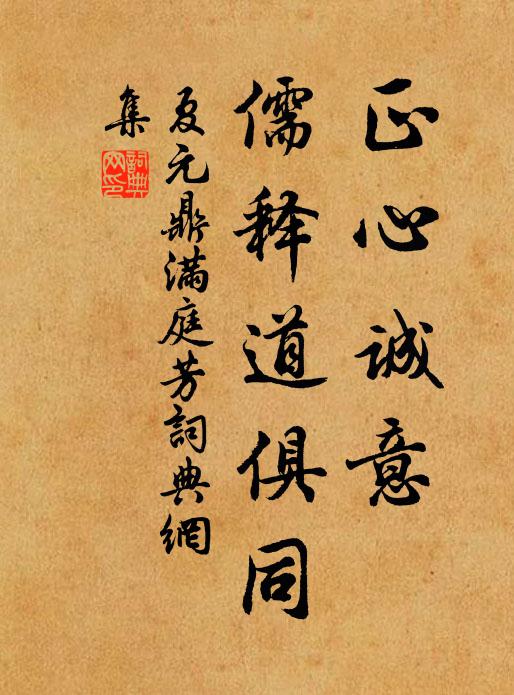 正心誠意
儒释道俱同
夏元鼎满庭芳詞典網
集
詞典
网印